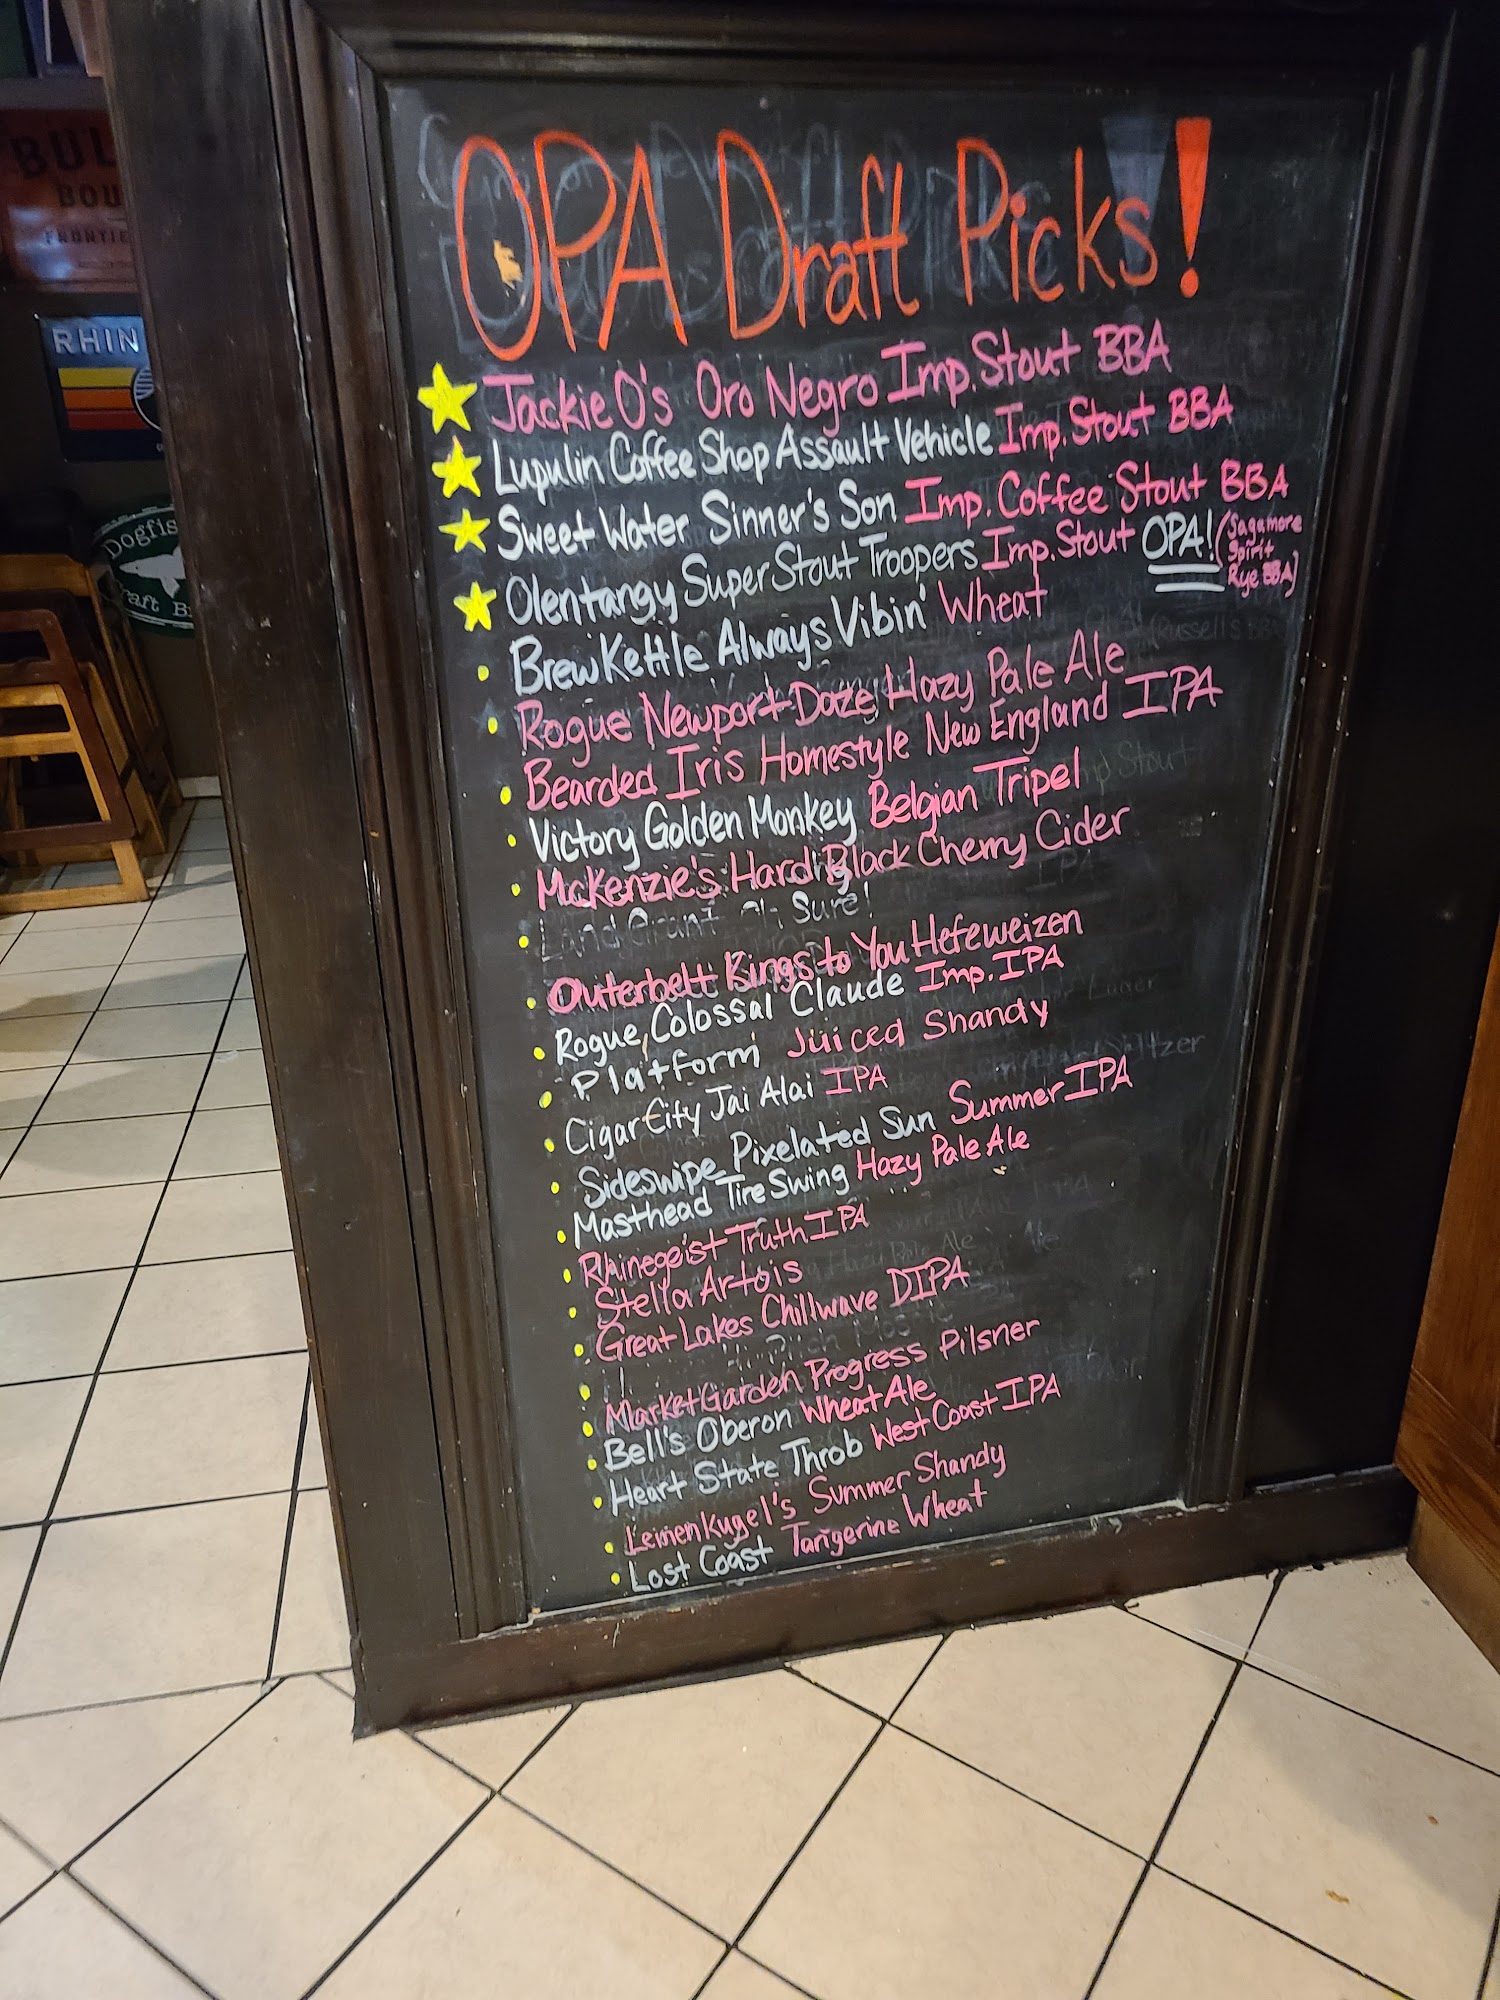 OPA Draft Picks!
Jackie O's Oro Negro Imp. Stout BBA
Lupulin Coffee Shop Assault Vehicle Imp. Stout BBA
Sweet Water Sinner's Son Imp. Coffee Stout BBA
Olentangy Super Stout Troopers Imp. Stout OPA! (Sagamore
Spirit
Rye BBA)
BrewKettle Always Vibin' Wheat
Rogue Newport Daze Hazy Pale Ale
Bearded Iris Homestyle New England IPA
Victory Golden Monkey Belgian Tripel
McKenzie's Hard Black Cherry Cider
Land Grant Oh Sure!
Outerbelt Kings to You Hefeweizen
Rogue Colossal Claude Imp. IPA
Platform Juiced Shandy
Cigar City Jai Alai IPA
Sideswipe Pixelated Sun Summer IPA
Masthead Tire Swing Hazy Pale Ale
Rhinegeist Truth IPA
Stella Artois
Great Lakes Chillwave DIPA
Market Garden Progress Pilsner
Bell's Oberon Wheat Ale
Heart State Throb West Coast IPA
Leinenkugel's Summer Shandy
Lost Coast Tangerine Wheat
BUL
BOU
FRONTIE
RHIN
Dogfis
raft B